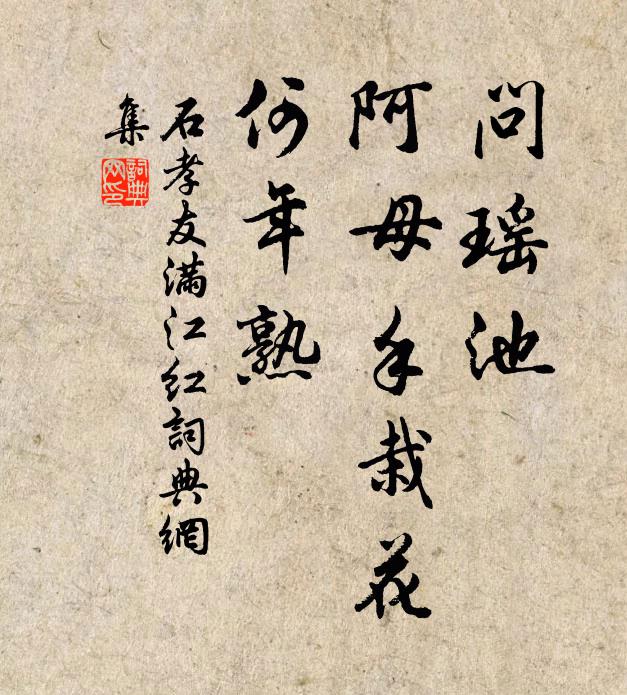 問瑶池
阿母手栽花
何年熟
石孝友满江红詞典網
集
詞典
网印